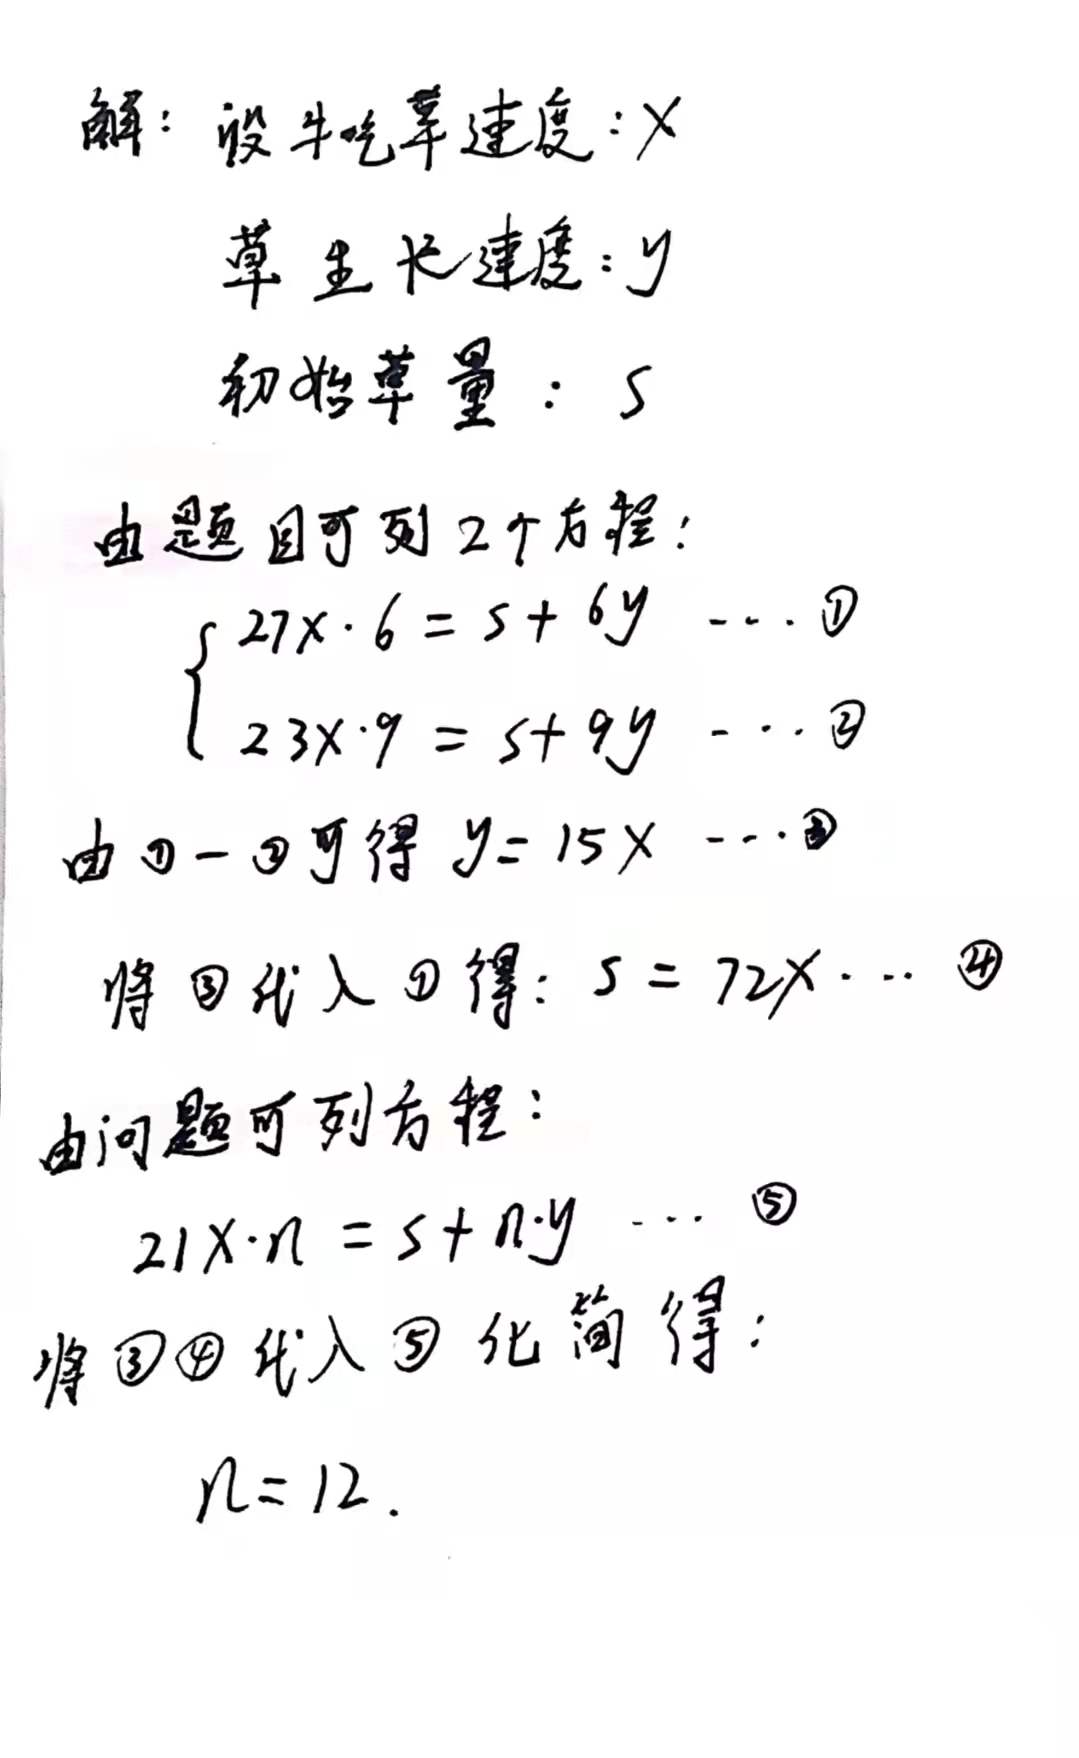 解：设牛吃草速度：x
草生长速度：y
初始草量：s
由题目可列2个方程：
27x·6=s+6y ----①
23x·9=s+9y ----②
由①-②可得 y=15x ----③
将③代入①得：s=72x--- ④
由问题可列方程：
21x·n=s+n·y --- ⑤
将③④代入⑤化简得：
n=12.